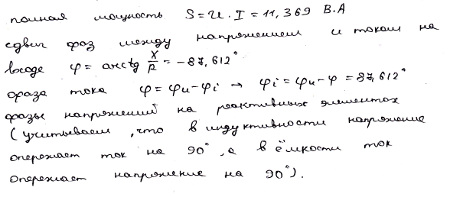 полная мощность S = U · I = 11,369 В.А
сдвиг фаз между напряжением и током на
входе φ = arctg X/R = -87,612°
фаза тока φ = φu - φi → φi = φu - φ = 87,612°
фазы напряжений на реактивных элементах
(учитываем, что в индуктивности напряжение
опережает ток на 90°, а в ёмкости ток
опережает напряжение на 90°).